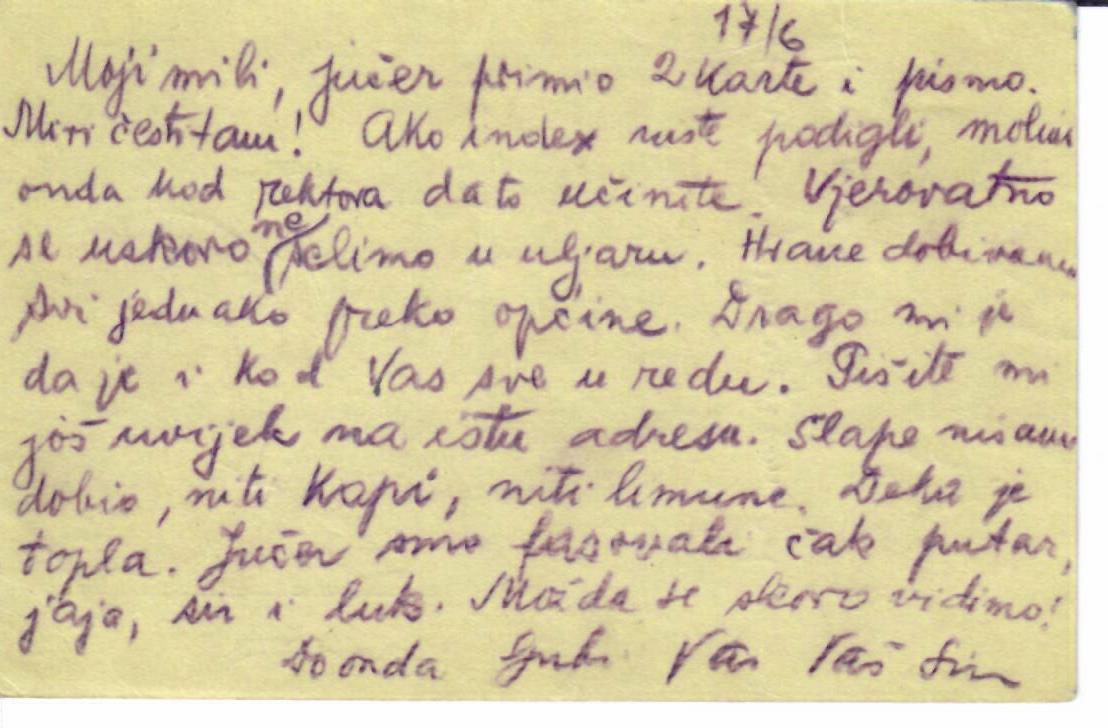 17/6
Moji mili, jučer primio 2 karte i pismo.
Miri čestitam! Ako index niste podigli, molim
onda kod rektora da to učinite. Vjerovatno
se uskoro ne selimo u uljaru. Hrane dobivamo
svi jednako preko općine. Drago mi je
da je i kod Vas sve u redu. Pišite mi
još uvijek na istu adresu. Slape nisam
dobio, niti kapi, niti limune. Deka je
topla. Jučer smo fasovali čak putar,
jaja, sir i luk. Možda se skoro vidimo!
Do onda ljubi Vas Vaš sin